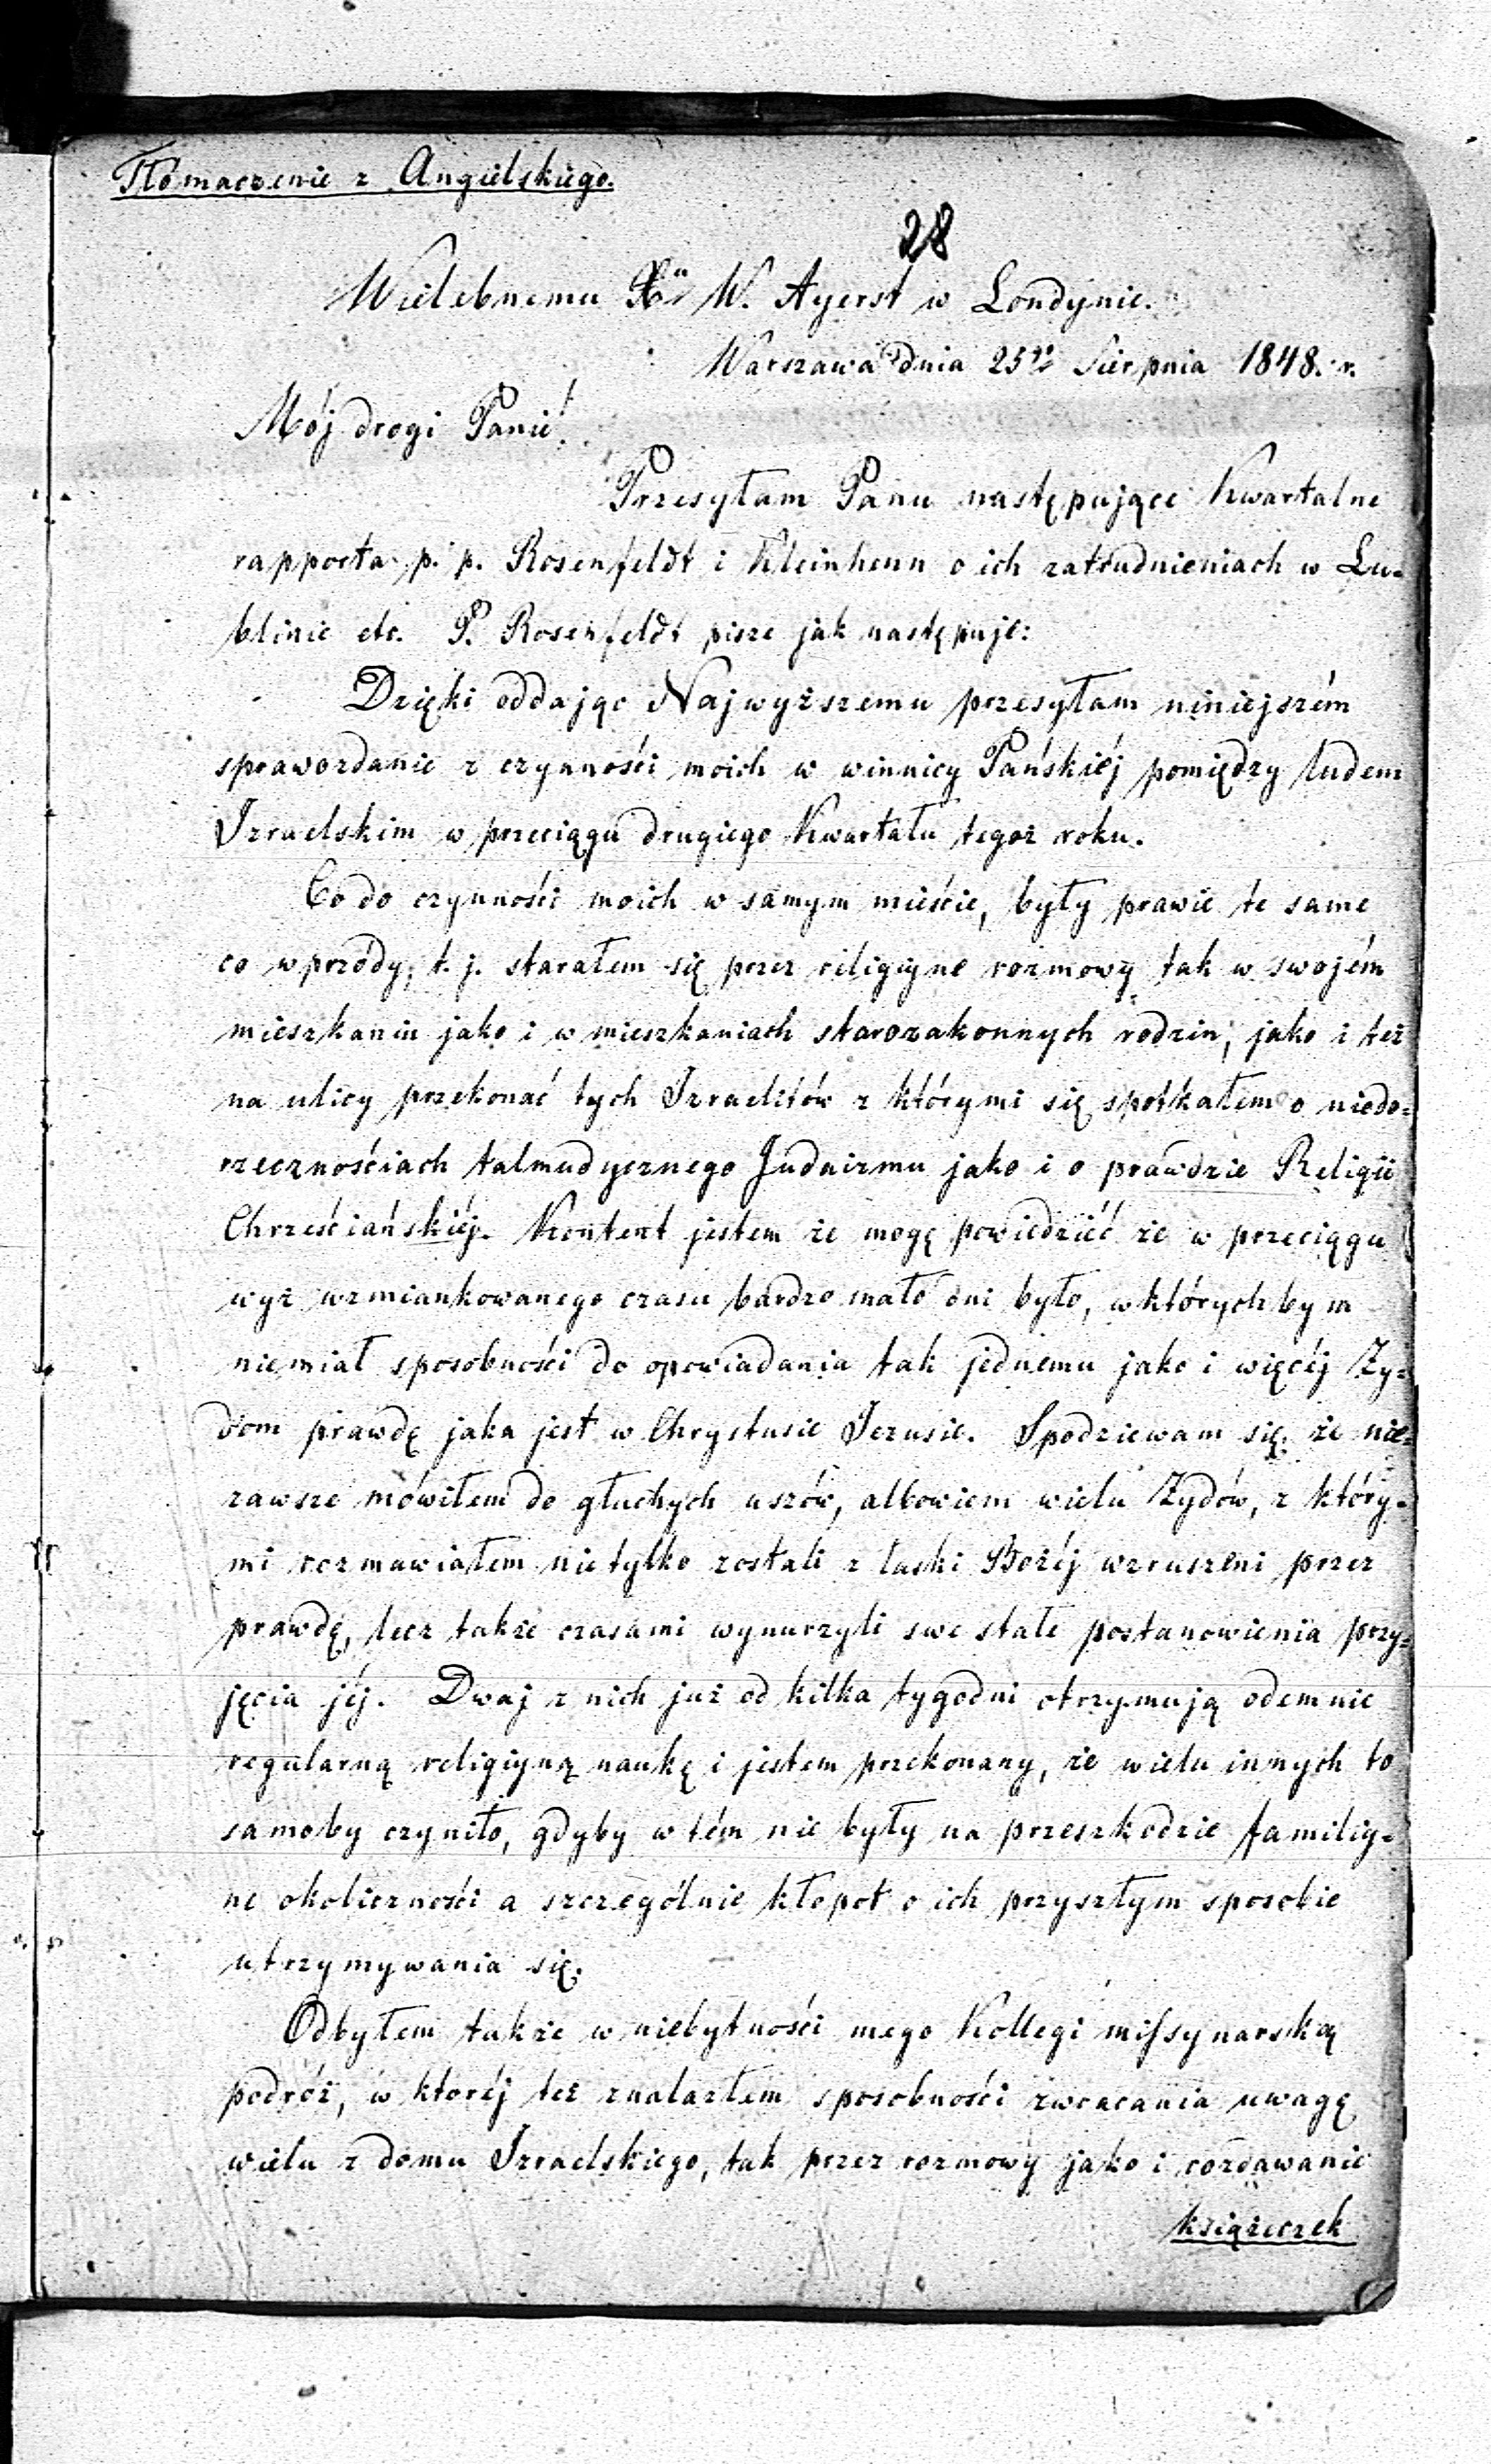 Tłómaczenie z Angielskiego.
28
Wielebnemu Xu W. Ayerst w Londynie.
Warszawa dnia 25go Sierpnia 1848. r.
Mój drogi Panie!
Przesyłam Panu następujące Kwartalne
rapporta p. p. Rosenfeldt i Kleinhenn o ich zatrudnieniach w Lu-
blinie etc. P. Rosenfeldt pisze jak następuje:
Dzięki oddając Najwyższemu przesyłam niniejszém
sprawozdanie z czynności moich w winnicy Pańskiéj pomiędzy ludem
Izraelskim w przeciągu drugiego Kwartału tegoż roku.
Co do czynności moich w samym mieście, były prawie te same
co wprzódy, t. j. starałem się przez religiyne rozmowy tak w swojém
mieszkaniu jako i w mieszkaniach starozakonnych rodzin, jako i też
na ulicy przekonać tych Izraelitów z którymi się spotkałem o niedo-
rzecznościach talmudycznego Judaizmu jako i o prawdzie Religii
Chrześciańskiéj. Kontent jestem że mogę powiedzieć że w przeciągu
wyż wzmiankowanego czasu bardzo mało dni było, w których bym
niemiał sposobności do opowiadania tak jednemu jako i więcéj Ży-
dom prawdę jaka jest w Chrystusie Jezusie. Spodziewam się, że nie-
zawsze mówiłem do głuchych uszów, albowiem wielu Żydów, z który-
mi rozmawiałem nietylko zostali z łaski Bożéj wzruszeni przez
prawdę, lecz także czasami wynurzyli swe stałe postanowienia przy-
jęcia jéj. Dwaj z nich już od kilka tygodni otrzymują odemnie
regularną religiyną naukę i jestem przekonany, że wielu innych to
samoby czyniło, gdyby w tém nie były na przeszkodzie familiy-
ne okoliczności a szczególnie kłopot o ich przyszłym sposobie
utrzymywania się.
Odbyłem także w niebytności mego Kollegi missynarską
podróż, w któréj też znalazłem sposobności zwracania uwagę
wielu z domu Izraelskiego, tak przez rozmowy jako i rozdawanie
książeczek